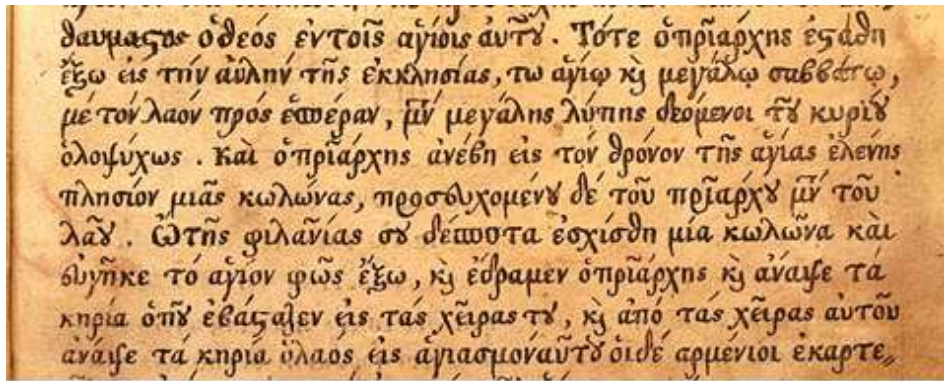 θαυμαςος ὁθεός ἐντοῖς ἁγίοις ἀυτȣ͂. Τότε ὁπρῖάρχης ἐςάθη
ἔξω εἰς τήν ἀυλήν τῆς ἐκκλησίας, τω ἁγίῳ κ̣ μεγάλῳ σαββάτῳ,
μέ τόν λαόν πρός ἑσπέραν, μν̃ μεγάλης λύπης δεόμενοι τȣ͂ κυρίȣ
ὁλοψύχως. Καὶ ὁπρῖάρχης ἀνέβη εἰς τόν θρόνον τῆς ἁγίας ἑλένης
πλησίον μιᾶς κωλώνας, προσευχομένȣ δέ τοῦ πρῖάρχȣ μν̃ τοῦ
λαȣ͂. Ὢτῆς φιλανίας σȣ δέσποτα ἐσχίσθη μία κωλῶνα καὶ
ευγῆκε τό ἅγιον φῶς ἔξω, κ̣ ἔδραμεν ὁπρῖάρχης κ̣ ἀναψε τά
κηρία ὁπȣ͂ ἐβάςαζεν εἰς τάς χεῖρας τȣ, κ̣ ἀπό τάς χεῖρας ἀυτοῦ
ἀναψε τά κηρία ὁλαός εἰς ἁγιασμόναὐτȣ͂ ὁιδέ αρμένιοι ἐκαρτε„